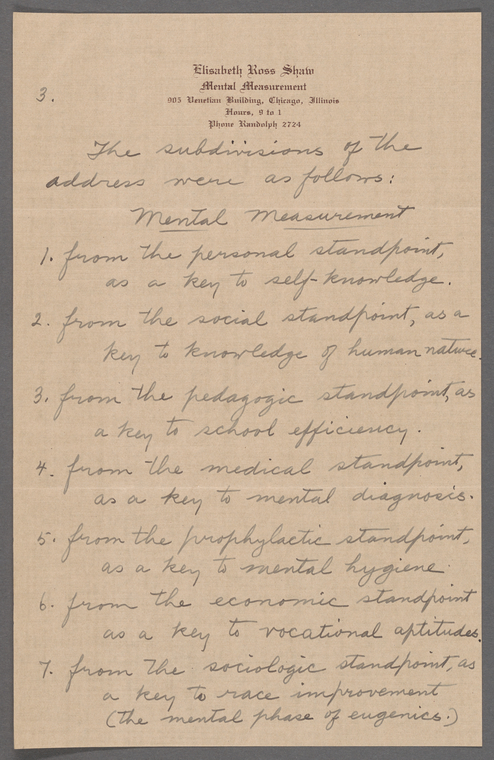 Elisabeth Ross Shaw
Mental Measurement
905 Venetian Building, Chicago, Illinois
Hours, 9 to 1
Phone Randolph 2724
3.
The subdivisions of the
address were as follows:
Mental Measurement
1. from the personal standpoint,
as a key to self-knowledge.
2. from the social standpoint, as a
key to knowledge of human nature.
3. from the pedagogic standpoint, as
a key to school efficiency.
4. from the medical standpoint,
as a key to mental diagnosis.
5. from the prophylactic standpoint,
as a key to mental hygiene.
6. from the economic standpoint
as a key to vocational aptitudes.
7. from the sociologic standpoint, as
a key to race improvement
(the mental phase of eugenics.)